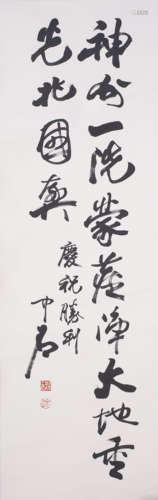 神州一洗蒙薉淨大地重
光兆國興
慶祝勝利
中石